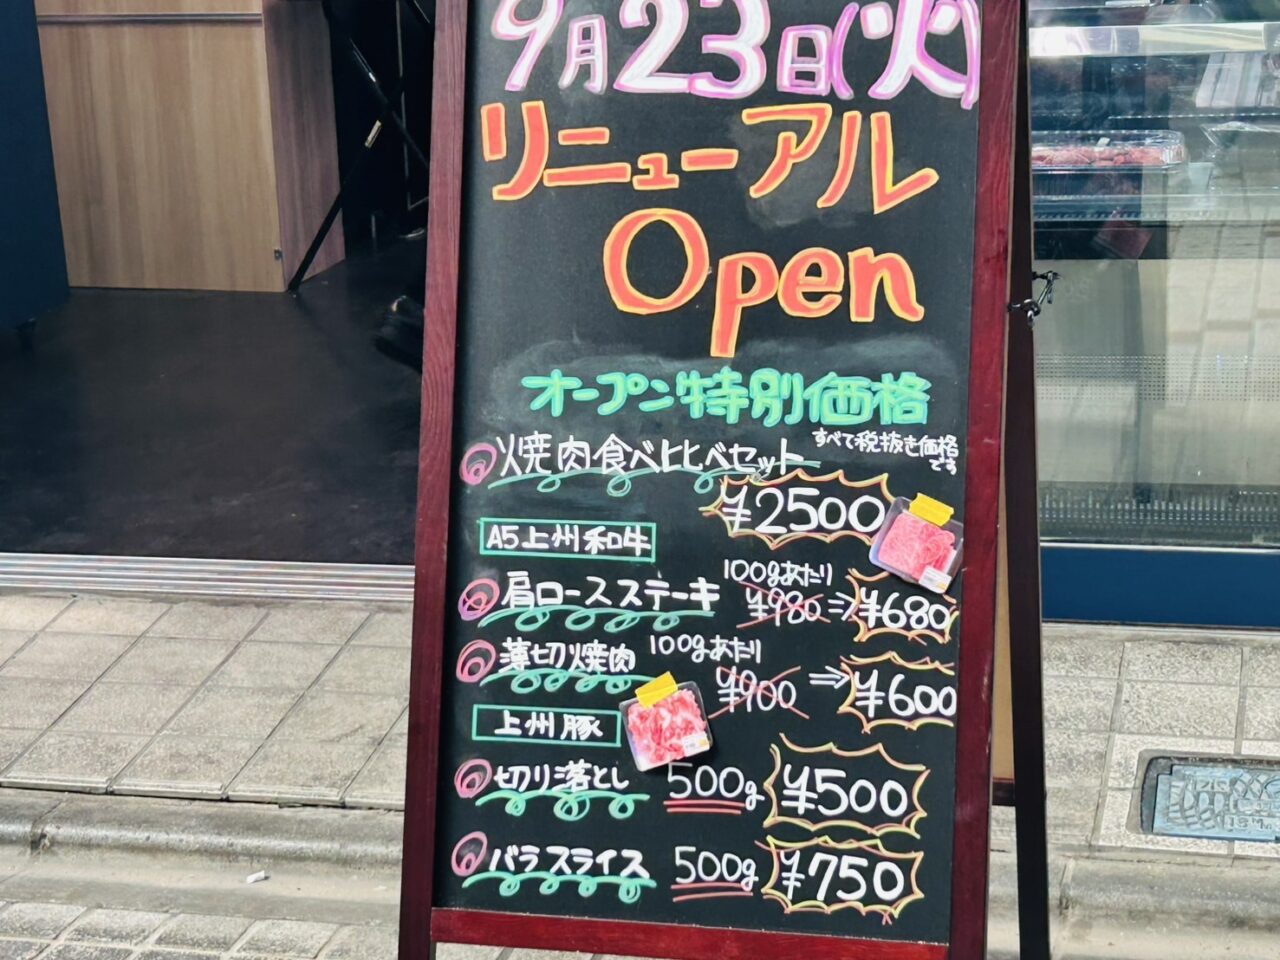 9月23日(火)
リニューアル
Open
オープン特別価格
すべて税抜き価格
です
焼肉食べ比べセット
¥2500
A5上州和牛
肩ロースステーキ 100gあたり ¥980⇒¥680
薄切焼肉 100gあたり ¥900⇒¥600
上州豚
切り落とし 500g ¥500
バラスライス 500g ¥750